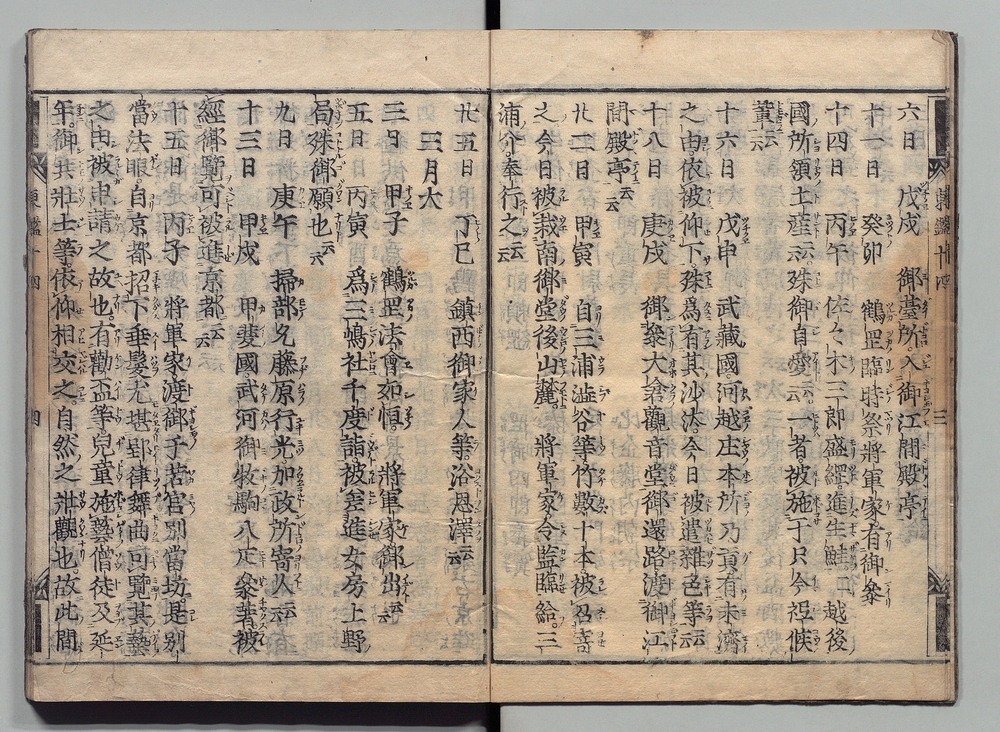 六日　戊戌　御臺所入御江間殿亭
十一日　癸卯　鶴罡臨時祭將軍家有御參
十四日　丙午　佐々木三郎盛綱進生鮭　越後
國所領土産云云殊御自愛云云一者被施于只今祗候
輩云云
十六日　戊申　武藏國河越庄本所乃貢有未濟
之由依被仰下殊爲有其沙汰今日被遣雜色等云云
十八日　庚戌　御參大倉觀音堂御還路渡御江
間殿亭云云
廿二日　甲寅　自三浦澁谷等竹數十本被召寄
之今日被栽南御堂後山麓　將軍家令監臨給三
浦介奉行之云云
廿五日　丁巳　鎮西御家人等浴恩澤云云
三月大
三日　甲子　鶴罡法會如恒　將軍家御出云云
五日　丙寅　爲三嶋社千度詣被差進女房上野
局殊御願也云云
九日　庚午　掃部允藤原行光加政所寄人云云
十三日　甲戌　甲斐國武河御牧駒八疋參著被
經御覽可被進京都云云
十五日　丙子　將軍家渡御于若宮別當坊是別
當法眼自京都招下垂髮尤堪郢律舞曲可覽其藝
之由被申請之故也有勸盃等兒童施藝僧徒及延
年御共壯士等依仰相交之自然之壯觀也故此間
東鑑十四　三
東鑑十四　四